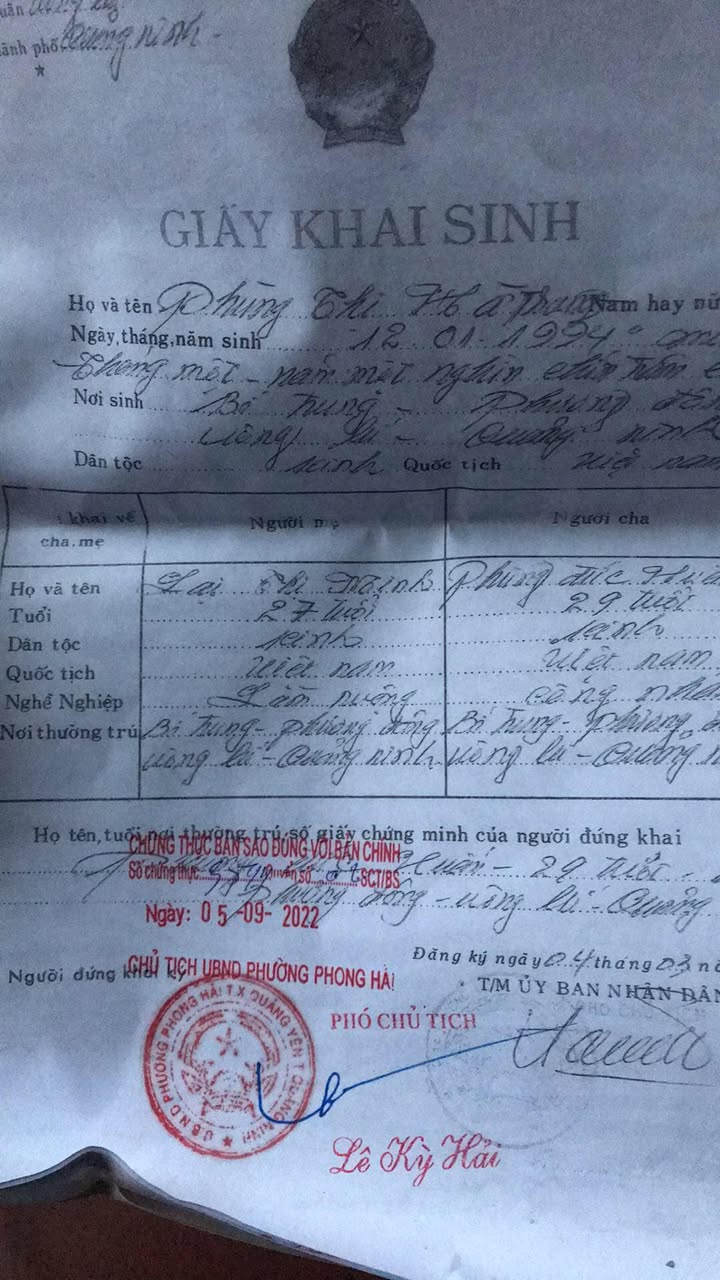 ành phố Quảng ninh
GIẤY KHAI SINH
Họ và tên Phùng Thị Nam hay nữ
Ngày, tháng, năm sinh 12.01.1994
Tháng một - năm một nghìn chín trăm
Nơi sinh Bí Trung - Phương
Uông bí - Quảng ninh
Dân tộc kinh Quốc tịch Việt nam
khai về cha, mẹ
Người mẹ
Người cha
Họ và tên Lại Thị Minh Phùng Đức
Tuổi 27 tuổi 29 tuổi
Dân tộc kinh kinh
Quốc tịch Việt nam Việt nam
Nghề Nghiệp Làm ruộng công nhân
Nơi thường trú Bí Trung - phương đông Bí Trung - Phương
uông bí - Quảng ninh uông bí - Quảng
Họ tên, tuổi, nơi thường trú, số giấy chứng minh của người đứng khai
29 tuổi
Phương đông - uông bí - Quảng
CHỨNG THỰC BẢN SAO ĐÚNG VỚI BẢN CHÍNH
Số chứng thực quyển số SCT/BS
Ngày: 05-09-2022
Đăng ký ngày 04 tháng 03
Người đứng khai ký
CHỦ TỊCH UBND PHƯỜNG PHONG HẢI
T/M ỦY BAN NHÂN DÂN
PHÓ CHỦ TỊCH
U.B.N.D PHƯỜNG PHONG HẢI T.X QUẢNG YÊN T. QUẢNG NINH
Lê Kỳ Hải